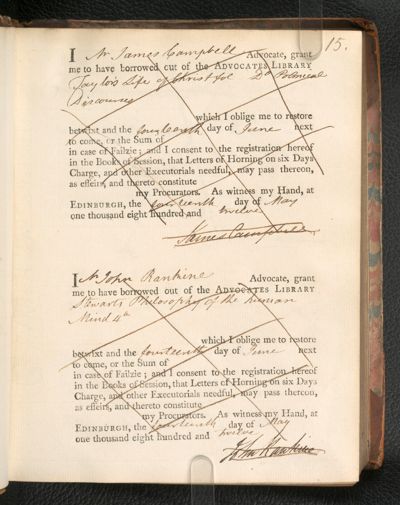 15.
I Mr James Campbell Advocate, grant
me to have borrowed out of the ADVOCATES LIBRARY
Taylors Life of Christ fol. Do Polemical
Discourses
which I oblige me to restore
betwixt and the fourteenth day of June next
to come, or the Sum of
in case of Failzie; and I consent to the registration hereof
in the Books of Session, that Letters of Horning on six Days
Charge, and other Executorials needful, may pass thereon,
as effeirs, and thereto constitute
my Procurators. As witness my Hand, at
EDINBURGH, the fourteenth day of May
one thousand eight hundred and twelve
James Campbell
I Mr John Rankine Advocate, grant
me to have borrowed out of the ADVOCATES LIBRARY
Stewarts Philosophy of the human
Mind 4to
which I oblige me to restore
betwixt and the fourteenth day of June next
to come, or the Sum of
in case of Failzie; and I consent to the registration hereof
in the Books of Session, that Letters of Horning on six Days
Charge, and other Executorials needful, may pass thereon,
as effeirs, and thereto constitute
my Procurators. As witness my Hand, at
EDINBURGH, the fourteenth day of May
one thousand eight hundred and twelve
John Rankine